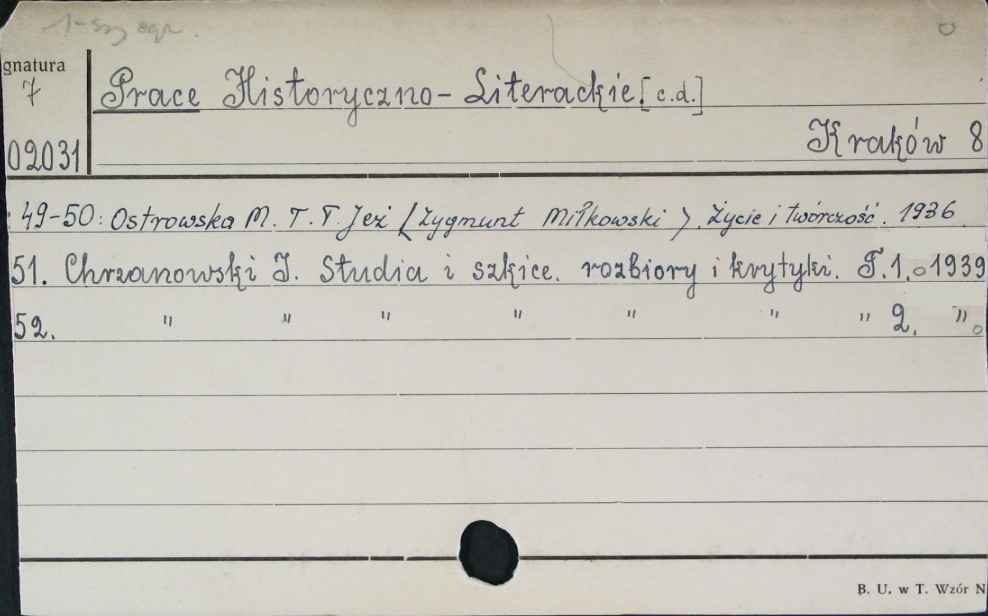 1-szy egz.
gnatura
7
Prace Historyczno-Literackie.[c.d.]
02031
Kraków 8
: 49-50: Ostrowska M. T. T. Jeż (Zygmunt Miłkowski). Życie i twórczość. 1936
51. Chrzanowski I. Studia i szkice. rozbiory i krytyki. T.1. 1939
52. " " " " " " " 2. ".
B. U. w T. Wzór N